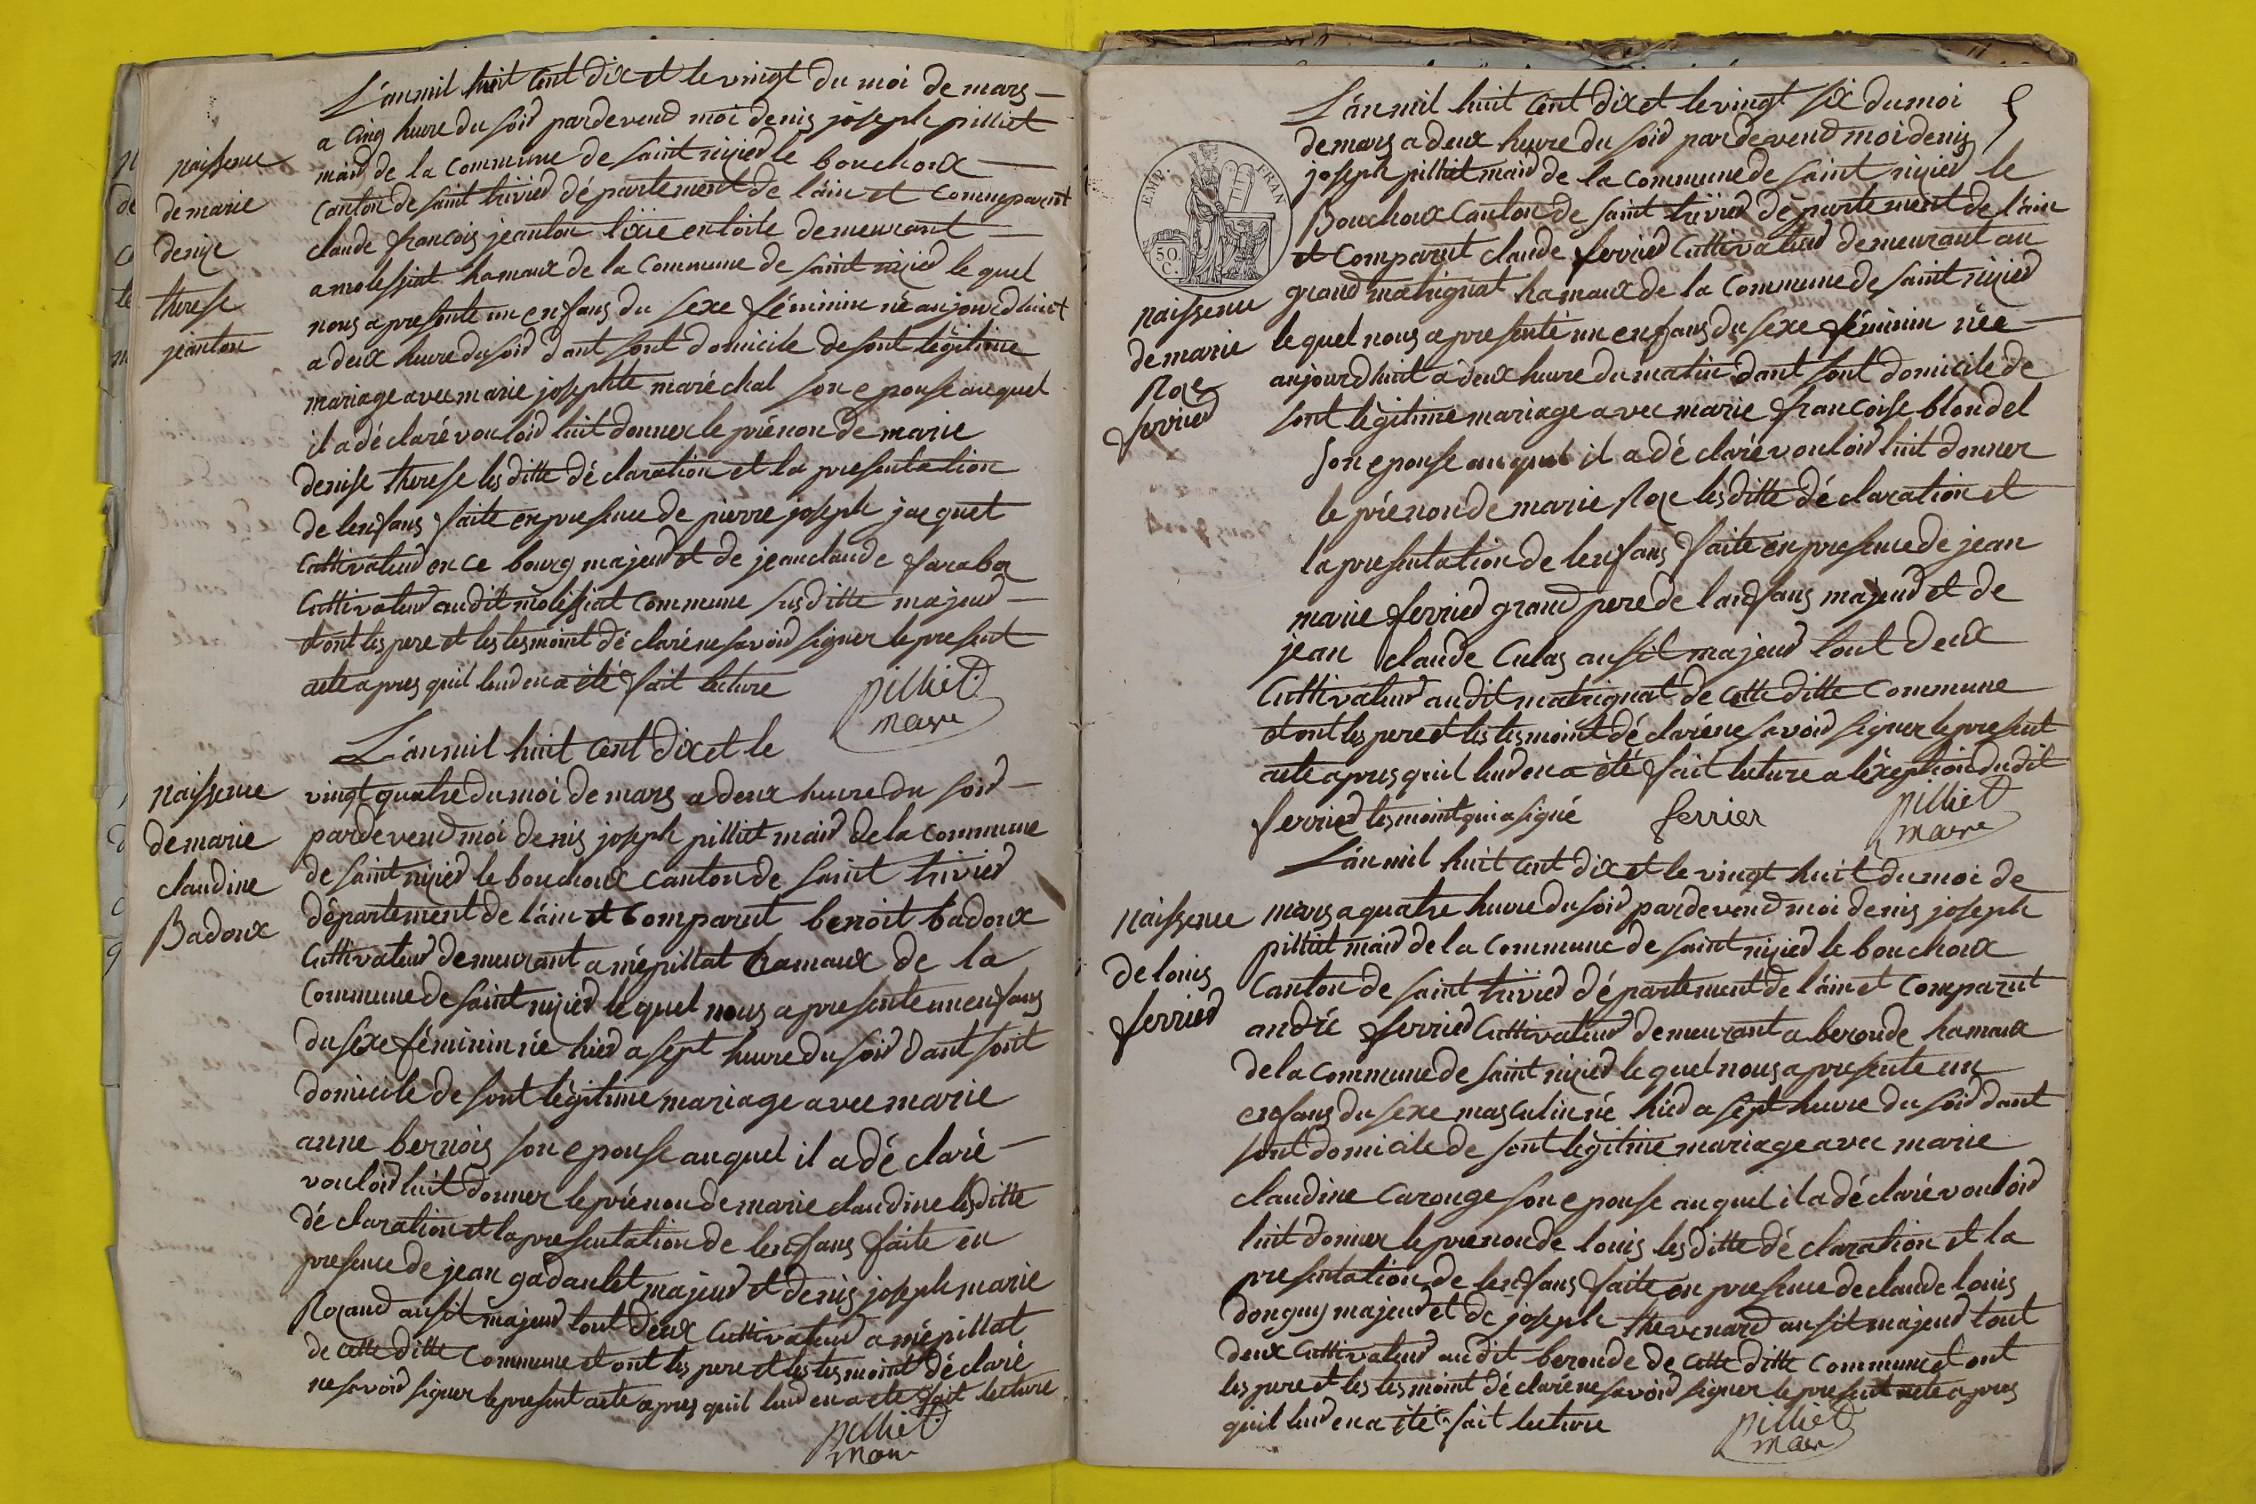 L'an mil huit cent dix et le vingt du moi de mars
a cinq heure du soir pardevend moi denis joseph pilliet
naissence
maid de la commune de saint nizied le bouchoux
de marie
canton de saint trivied département de l'ain et comneparent
denize
claude francois jeanton tixie en toile demeurant
therese
a molessiat hamaux de la commune de saint nizied le quel
jeanton
nous a presente un enfans du sexe féminin né aujourd huit
a deux heure du soid dant sont domicile de sont legitime
mariage avec marie josephte maréchal son epouse auquel
il a déclaré vouloid luit donner le prénon de marie
denise therese les ditte déclaration et la presentation
de lenfans faite en presence de pierre joseph jacquet
cultivateur en ce bourg majeur et de jean claude faraboz
cultivateur audit molessiat commune susditte majeur
et ont les pere et les tesmoint déclaré ne savoid signer le present
acte apres quil leud en a été fait lecture
pilliet
maire
L'an mil huit cent dix et le
naissence
vingt quatre du moi de mars a deux heure du soid
de marie
pardevend moi denis joseph pilliet maid de la commune
claudine
de saint nizied le bouchoux canton de saint trivied
Badoux
département de l'ain et comparut benoit badoux
cultivateur demeurant a mépillat hamaux de la
commune de saint nizied le quel nous a presente un enfans
du sexe féminin née hied a sept heure du soid dant sont
domicile de sont légitime mariage avec marie
anne bernois son epouse auquel il a déclaré
vouloid luit donner le prénon de marie claudine les ditte
déclaration et la presentation de lenfans faite en
presence de jean gadaulet majeur et denis joseph marie
Rozand ausit majeur tout deux cultivateur a mépillat
de cette ditte commune et ont les pere et les tesmoint déclaré
ne savoid signer le present acte apres quil leud en a été fait lecture
pilliet
maire
5
L'an mil huit cent dix et le vingt six du moi
de mars a deux heure du soid pardevend moi denis
joseph pilliet maid de la commune de saint nizied le
EMP. FRAN
50
C.
Bouchoux canton de saint trivied département de l'ain
et comparut claude ferried cultivateur demeurant au
grand matrignat hamaux de la commune de saint nizied
naissence
le quel nous a presenté un enfans du sexe féminin née
de marie
aujourdhuit a deux heure du matin dant sont domicile de
Roze
sont légitime mariage avec marie francoise blondel
ferried
son epouse auquel il a déclaré vouloid luit donner
le prénon de marie Roze les ditte déclaration et
la presentation de lenfans faite en presence de jean
marie ferried grand pere de lanfans majeur et de
jean claude Culas ausit majeur tout deux
cultivateur audit matrignat de cette ditte commune
et ont les pere et les tesmoint déclaré ne savoid signer le present
acte apres quil leud en a été fait lecture a lexeption dudit
ferried tesmoint qui a signé
ferrier
pilliet
maire
L'an mil huit cent dix et le vingt huit du moi de
naissence
mars a quatre heure du soid pardevend moi denis joseph
pilliet maid de la commune de saint nizied le bouchoux
de louis
canton de saint trivied département de l'ain et comparut
ferried
andré ferried cultivateur demeurant a beroude hamaux
de la commune de saint nizied le quel nous a presente un
enfans du sexe masculin né hied a sept heure du soid dant
sont domicile de sont légitime mariage avec marie
claudine Carouge son epouse auquel il a déclaré vouloid
luit donner le prenon de louis les ditte déclaration et la
presentation de lenfans faite en presence de claude louis
donguy majeur et de joseph thevenard ausit majeur tout
deux cultivateur audit beroude de cette ditte commune et ont
les pere et les tesmoint déclaré ne savoid signer le present acte apres
quil leud en a été fait lecture
pilliet
maire